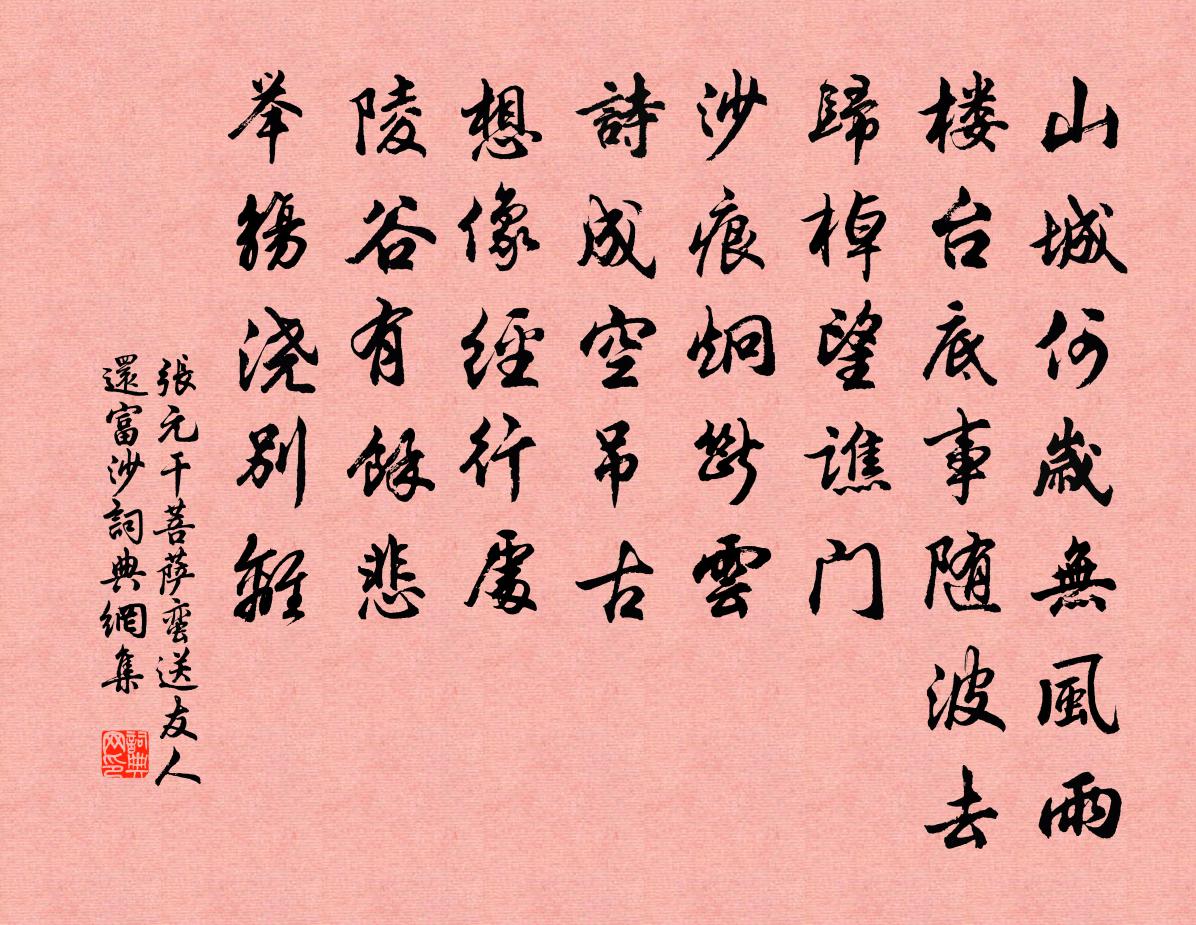 山城何歲無風雨
楼台底事随波去
歸棹望譙门
沙痕炯斷雲
詩成空吊古
想像經行處
陵谷有餘悲
举觴浇別離
張元干菩萨蛮送友人
還富沙詞典網集
詞典网印